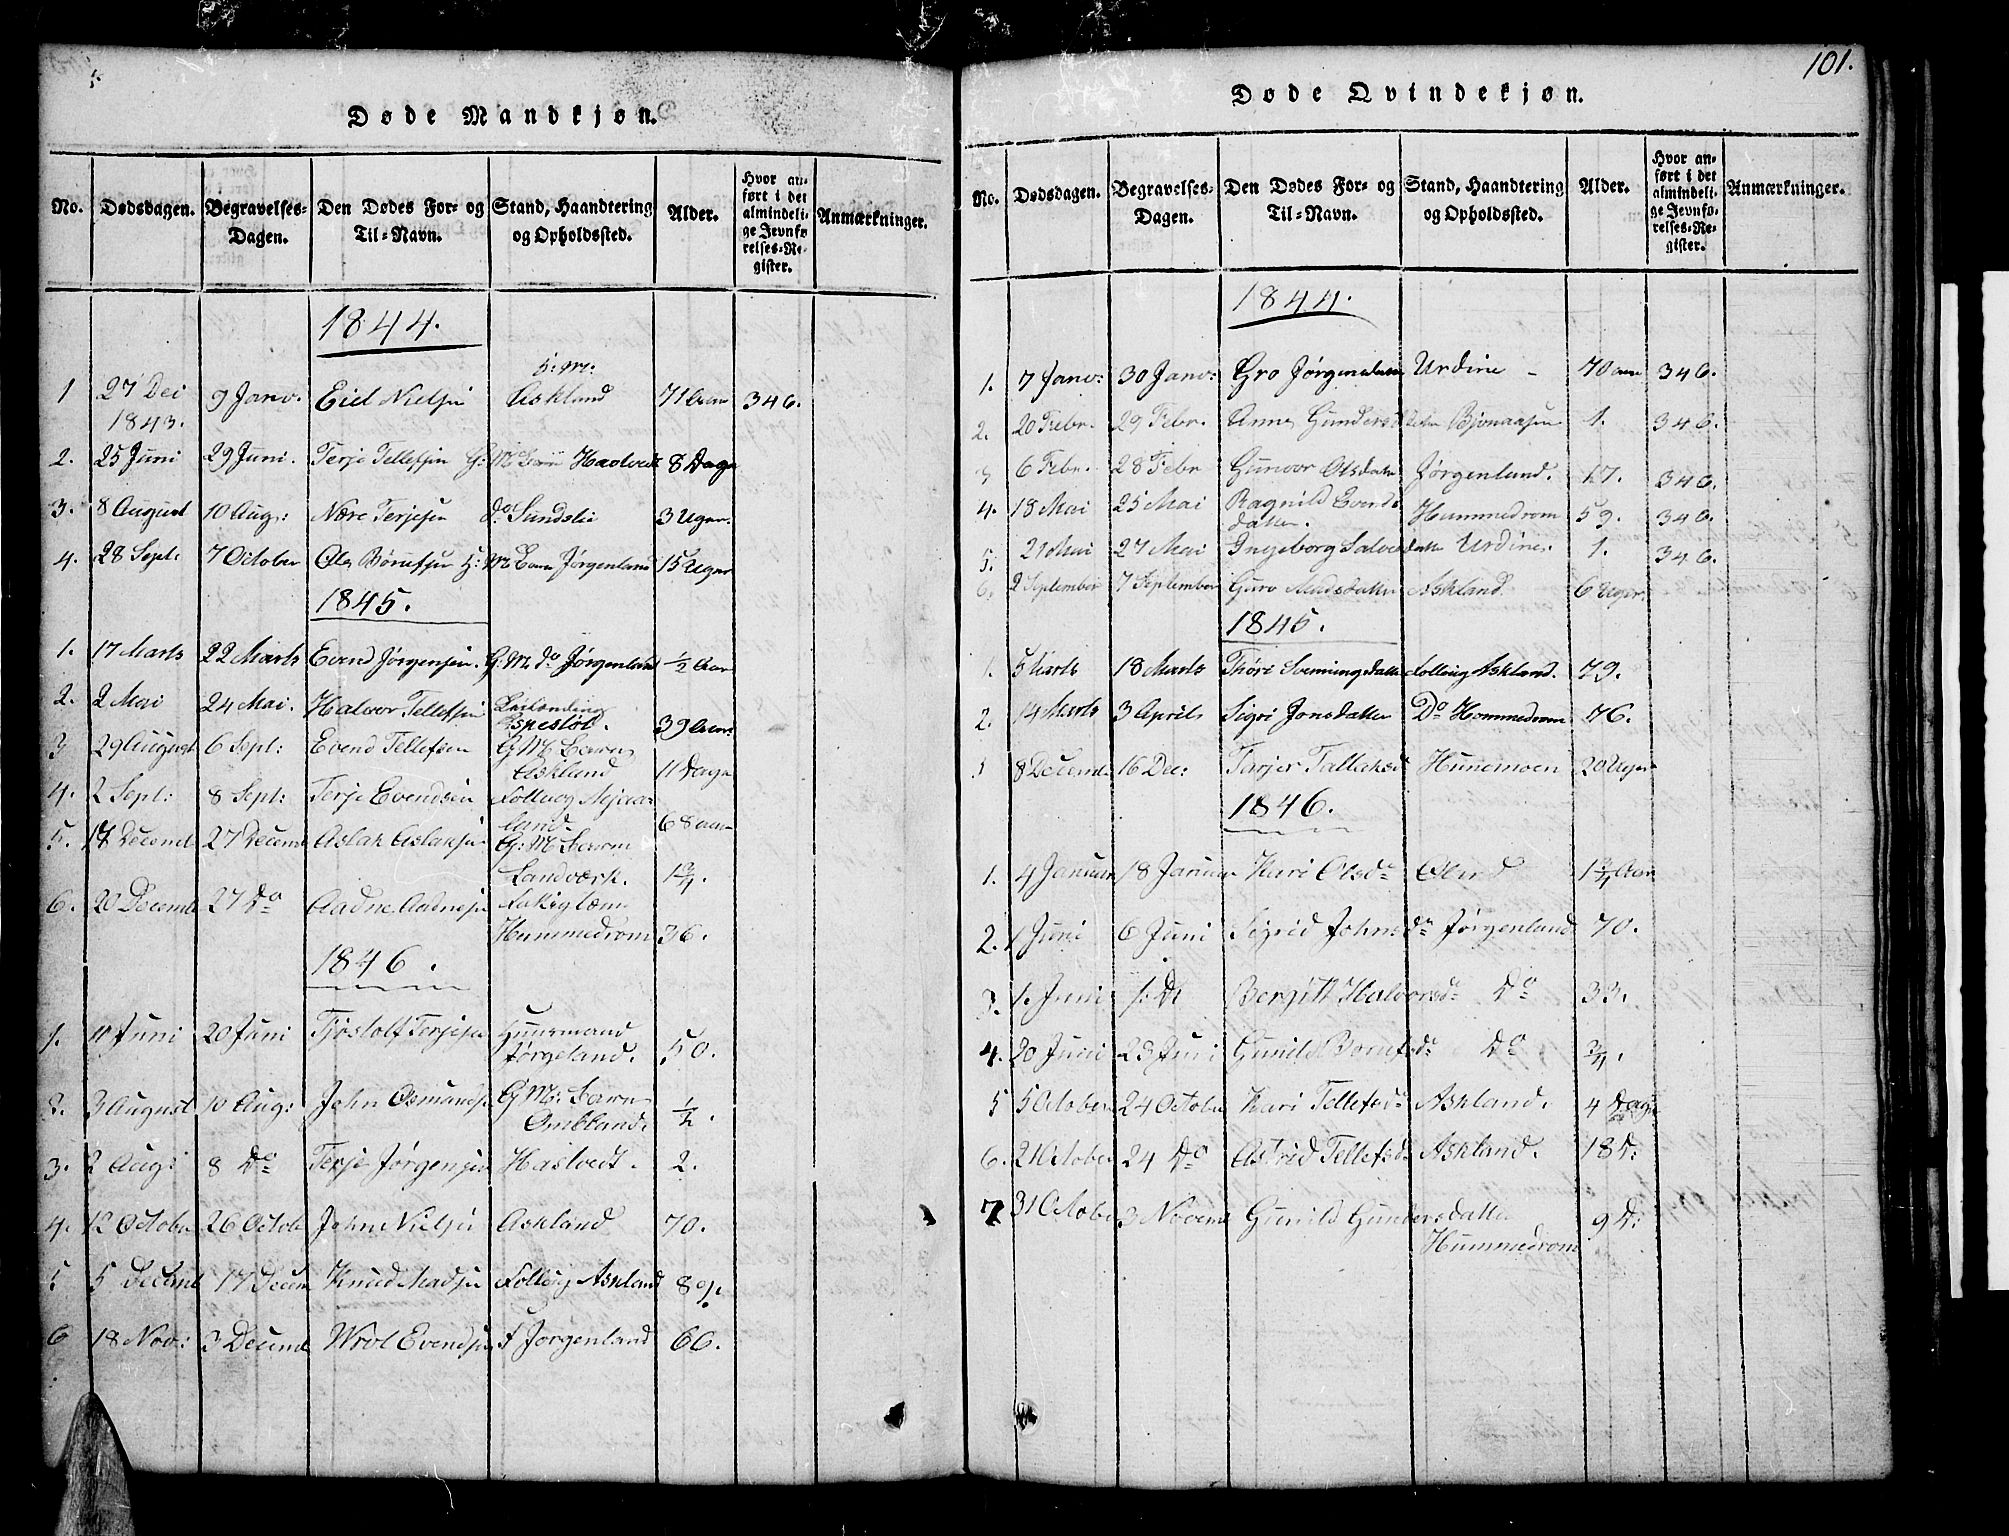 101.
Døde Mandkjøn.
No. Dødsdagen. Begravelses-Dagen. Den Dødes For- og Til-Navn. Stand, Haandtering og Opholdssted. Alder. Hvor anført i det almindelige Jevnførelses-Register. Anmærkninger.
1844.
1 27 Dei 1843. 9 Janv. Eiel Nielsen G: M: Askland 71 Aar 346.
2. 25 Juni 29 Juni. Terje Tellefsen G: M Barn 8 Dage
3. 8 August 10 Aug: Terjesen do Sundslie 3 Uger.
4. 28 Sept: 7 October Ole G: M Barn Jørgenland 15 Uger
1845.
1. 17 Marts 22 Marts Evend Jørgensen. G: M do Jørgenland 1/2 Aar
2. 2 Mai 24 Mai. Halvor Tellefsen 39 Aar
3 29 August 6 Sept: Evend Tellefsen G M Barn Askland 11 Dage
4. 2 Sept: 8 Sept: Terje Evendsen 68 aar
5. 17 Decemb 27 Decemb Aslak Aslaksen G: M Barn Landværk. 1 3/4.
6. 20 Decemb 27 Do Aadne Aadnesen Hummedrom 36.
1846.
1. 11 Juni 20 Juni Tjostolf Terjesen Huusmand Jørgeland. 50.
2. 3 August 10 Aug: John Osmunds. G M: Barn Omland. 1/2.
3. 2 Aug: 8 Do Terje Jørgensen Haslvedt. 2.
4. 12 Octobr 26 Octob John Nielsen Askland 70.
5 5 Decemb 17 Decem Knud Madsen Folleug Askland 80.
6 18 Nov: 3 Decemb Wrol Evendsen F Jorgenland 66.
Døde Qvindekjøn.
No. Dødsdagen. Begravelses-Dagen. Den Dødes For- og Til-Navn. Stand, Haandtering og Opholdssted. Alder. Hvor anført i det almindelige Jevnførelses-Register. Anmærkninger.
1844.
1. 7 Janv: 30 Janv: Gro Jørgensdatter Urdine - 70 aar 346.
2. 20 Febr. 29 Febr. Anne Gundersdatter 1. 346.
3 6 Febr. 28 Febr Gunvor Olsdatter Jørgenland. 17. 346.
4. 18 Mai 25 Mai Ragnild Evends datter. Hummedrom 59. 346.
5. 21 Mai 27 Mai Ingeborg Salvesdatter Urdine. 1. 346.
6. 2 September 7 September Guro Madsdatter Askland 6 Uger.
1845.
1. 5 Marts 18 Marts Thore Svenningsdatter Folleug Askland. 79.
2. 14 Marts 3 April Sigri Jonsdatter Do Hommedrom 76.
3 8 Decemb 16 Dec: Tarjer Tallaksd Hunemoen 20 Uger
1846.
1. 4 Januar 18 Januar Kari Olsdr 1 3/4 Aar
2. 1 Juni 6 Juni Sigrid Johnsdr Jørgenland 70.
3. 1. Juni Bergitt Halvorsdr Do 33.
4. 20 Juni 23 Juni Gunild dr Do 3/4.
5 5 October 24 Octobr Kari Tellefsdr Askland. 4 Dage
6. 21 October 24 Do Astrid Tellefsdr Askland. 18 D:
7 31 Octobe 3 Novem Gunild Gundersdatter Hummedrom 9 D: